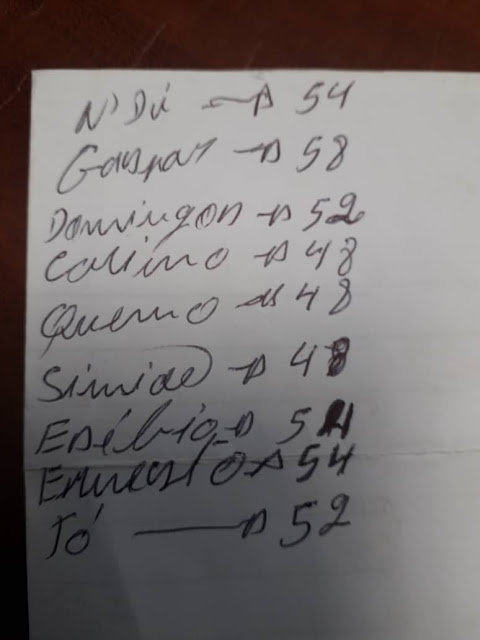 N'Dú → 54
Gaspar → 58
Domingos → 52
Calimo → 48
Quemo → 48
Simião → 48
Esébio → 54
Ernesto → 54
Tó → 52